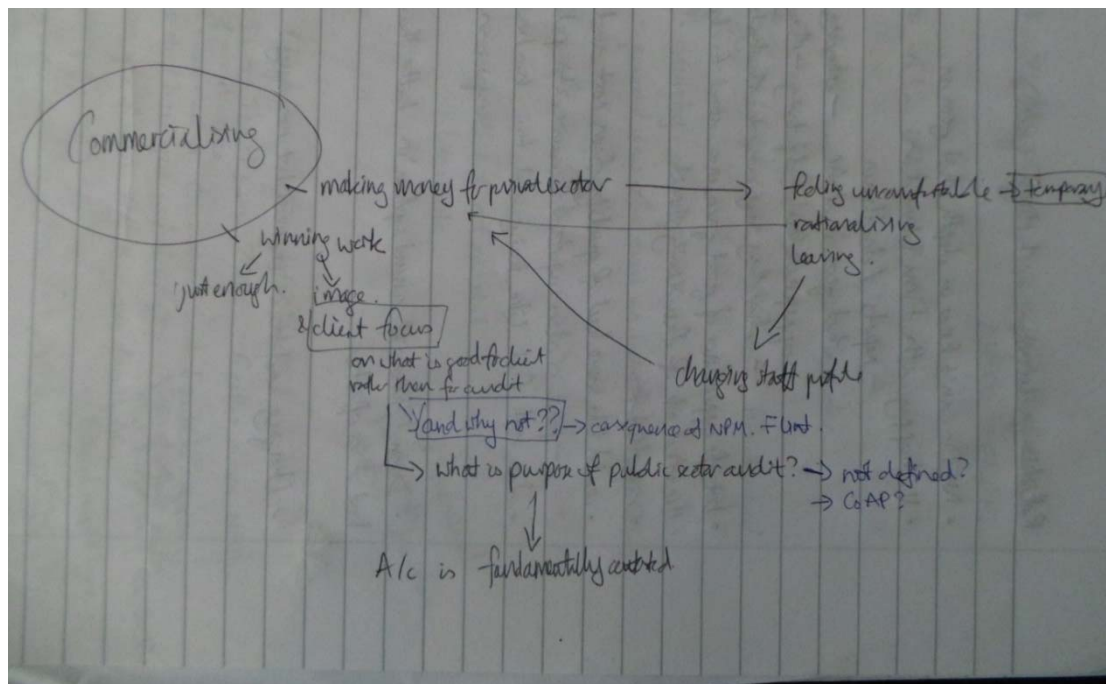 Commercialising
making money for private sector
feeling uncomfortable → temporary
rationalising
leaving.
winning work
just enough.
image.
& client focus
on what is good for client
rather than for audit
changing staff profile
and why not?? → consequence of NPM. Flint.
what is purpose of public sector audit? → not defined?
→ CoAP?
A/c is fundamentally contested